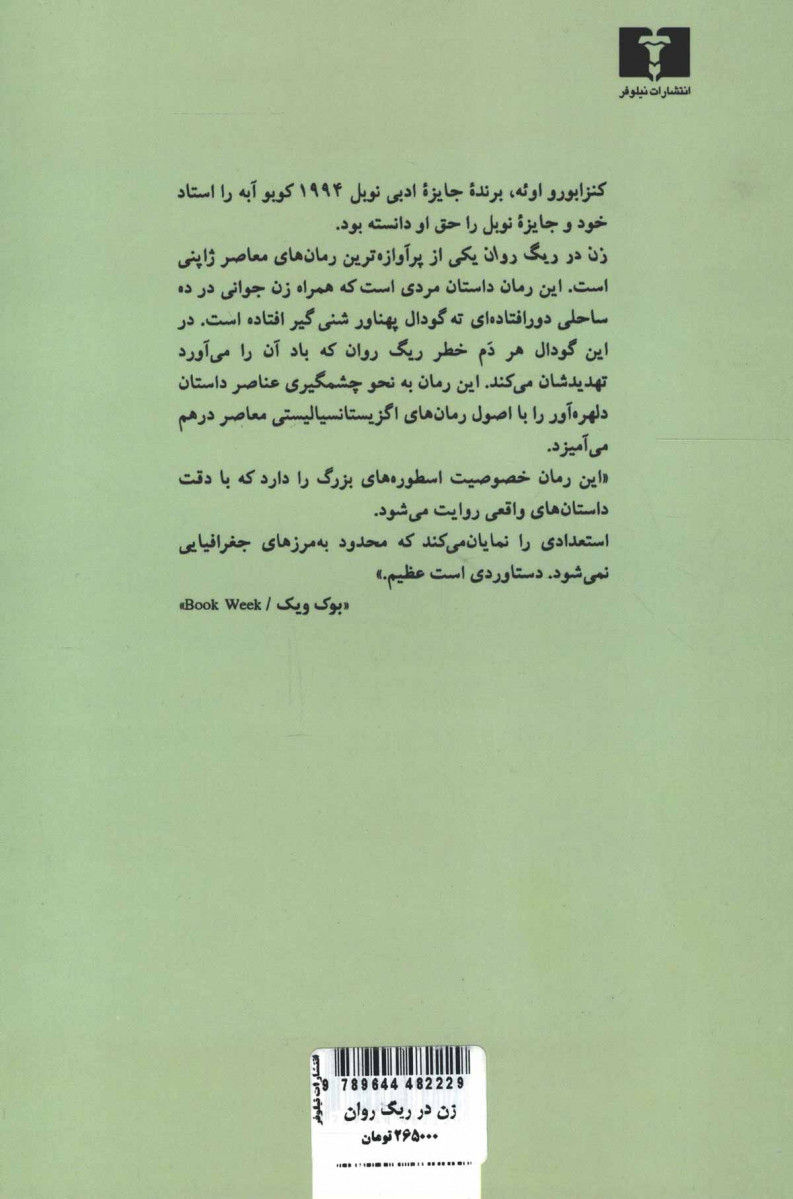 انتشارات نیلوفر
کنزابورو اوئه، برندهٔ جایزهٔ ادبی نوبل ۱۹۹۴ کوبو آبه را استاد
خود و جایزهٔ نوبل را حق او دانسته بود.
زن در ریگ روان یکی از پرآوازه‌ترین رمان‌های معاصر ژاپنی
است. این رمان داستان مردی است که همراه زن جوانی در ده
ساحلی دورافتاده‌ای ته گودال پهناور شنی گیر افتاده است. در
این گودال هر دَم خطر ریگ روان که باد آن را می‌آورد
تهدیدشان می‌کند. این رمان به نحو چشمگیری عناصر داستان
دلهره‌آور را با اصول رمان‌های اگزیستانسیالیستی معاصر درهم
می‌آمیزد.
«این رمان خصوصیت اسطوره‌های بزرگ را دارد که با دقت
داستان‌های واقعی روایت می‌شود.
استعدادی را نمایان می‌کند که محدود به‌مرزهای جغرافیایی
نمی‌شود. دستاوردی است عظیم.»
«بوک ویک / Book Week»
انتشارات نیلوفر
9 789644 482229
زن در ریگ روان
۲۶۵۰۰۰ تومان